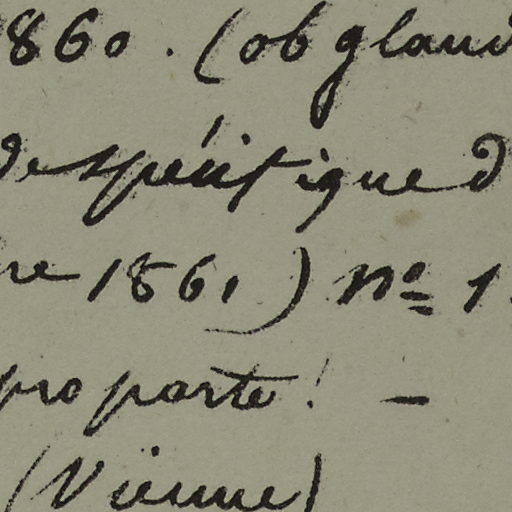 860. (ob gland
de spécifique d
re 1861) nº 1.
pro parte! —
(Vienne)